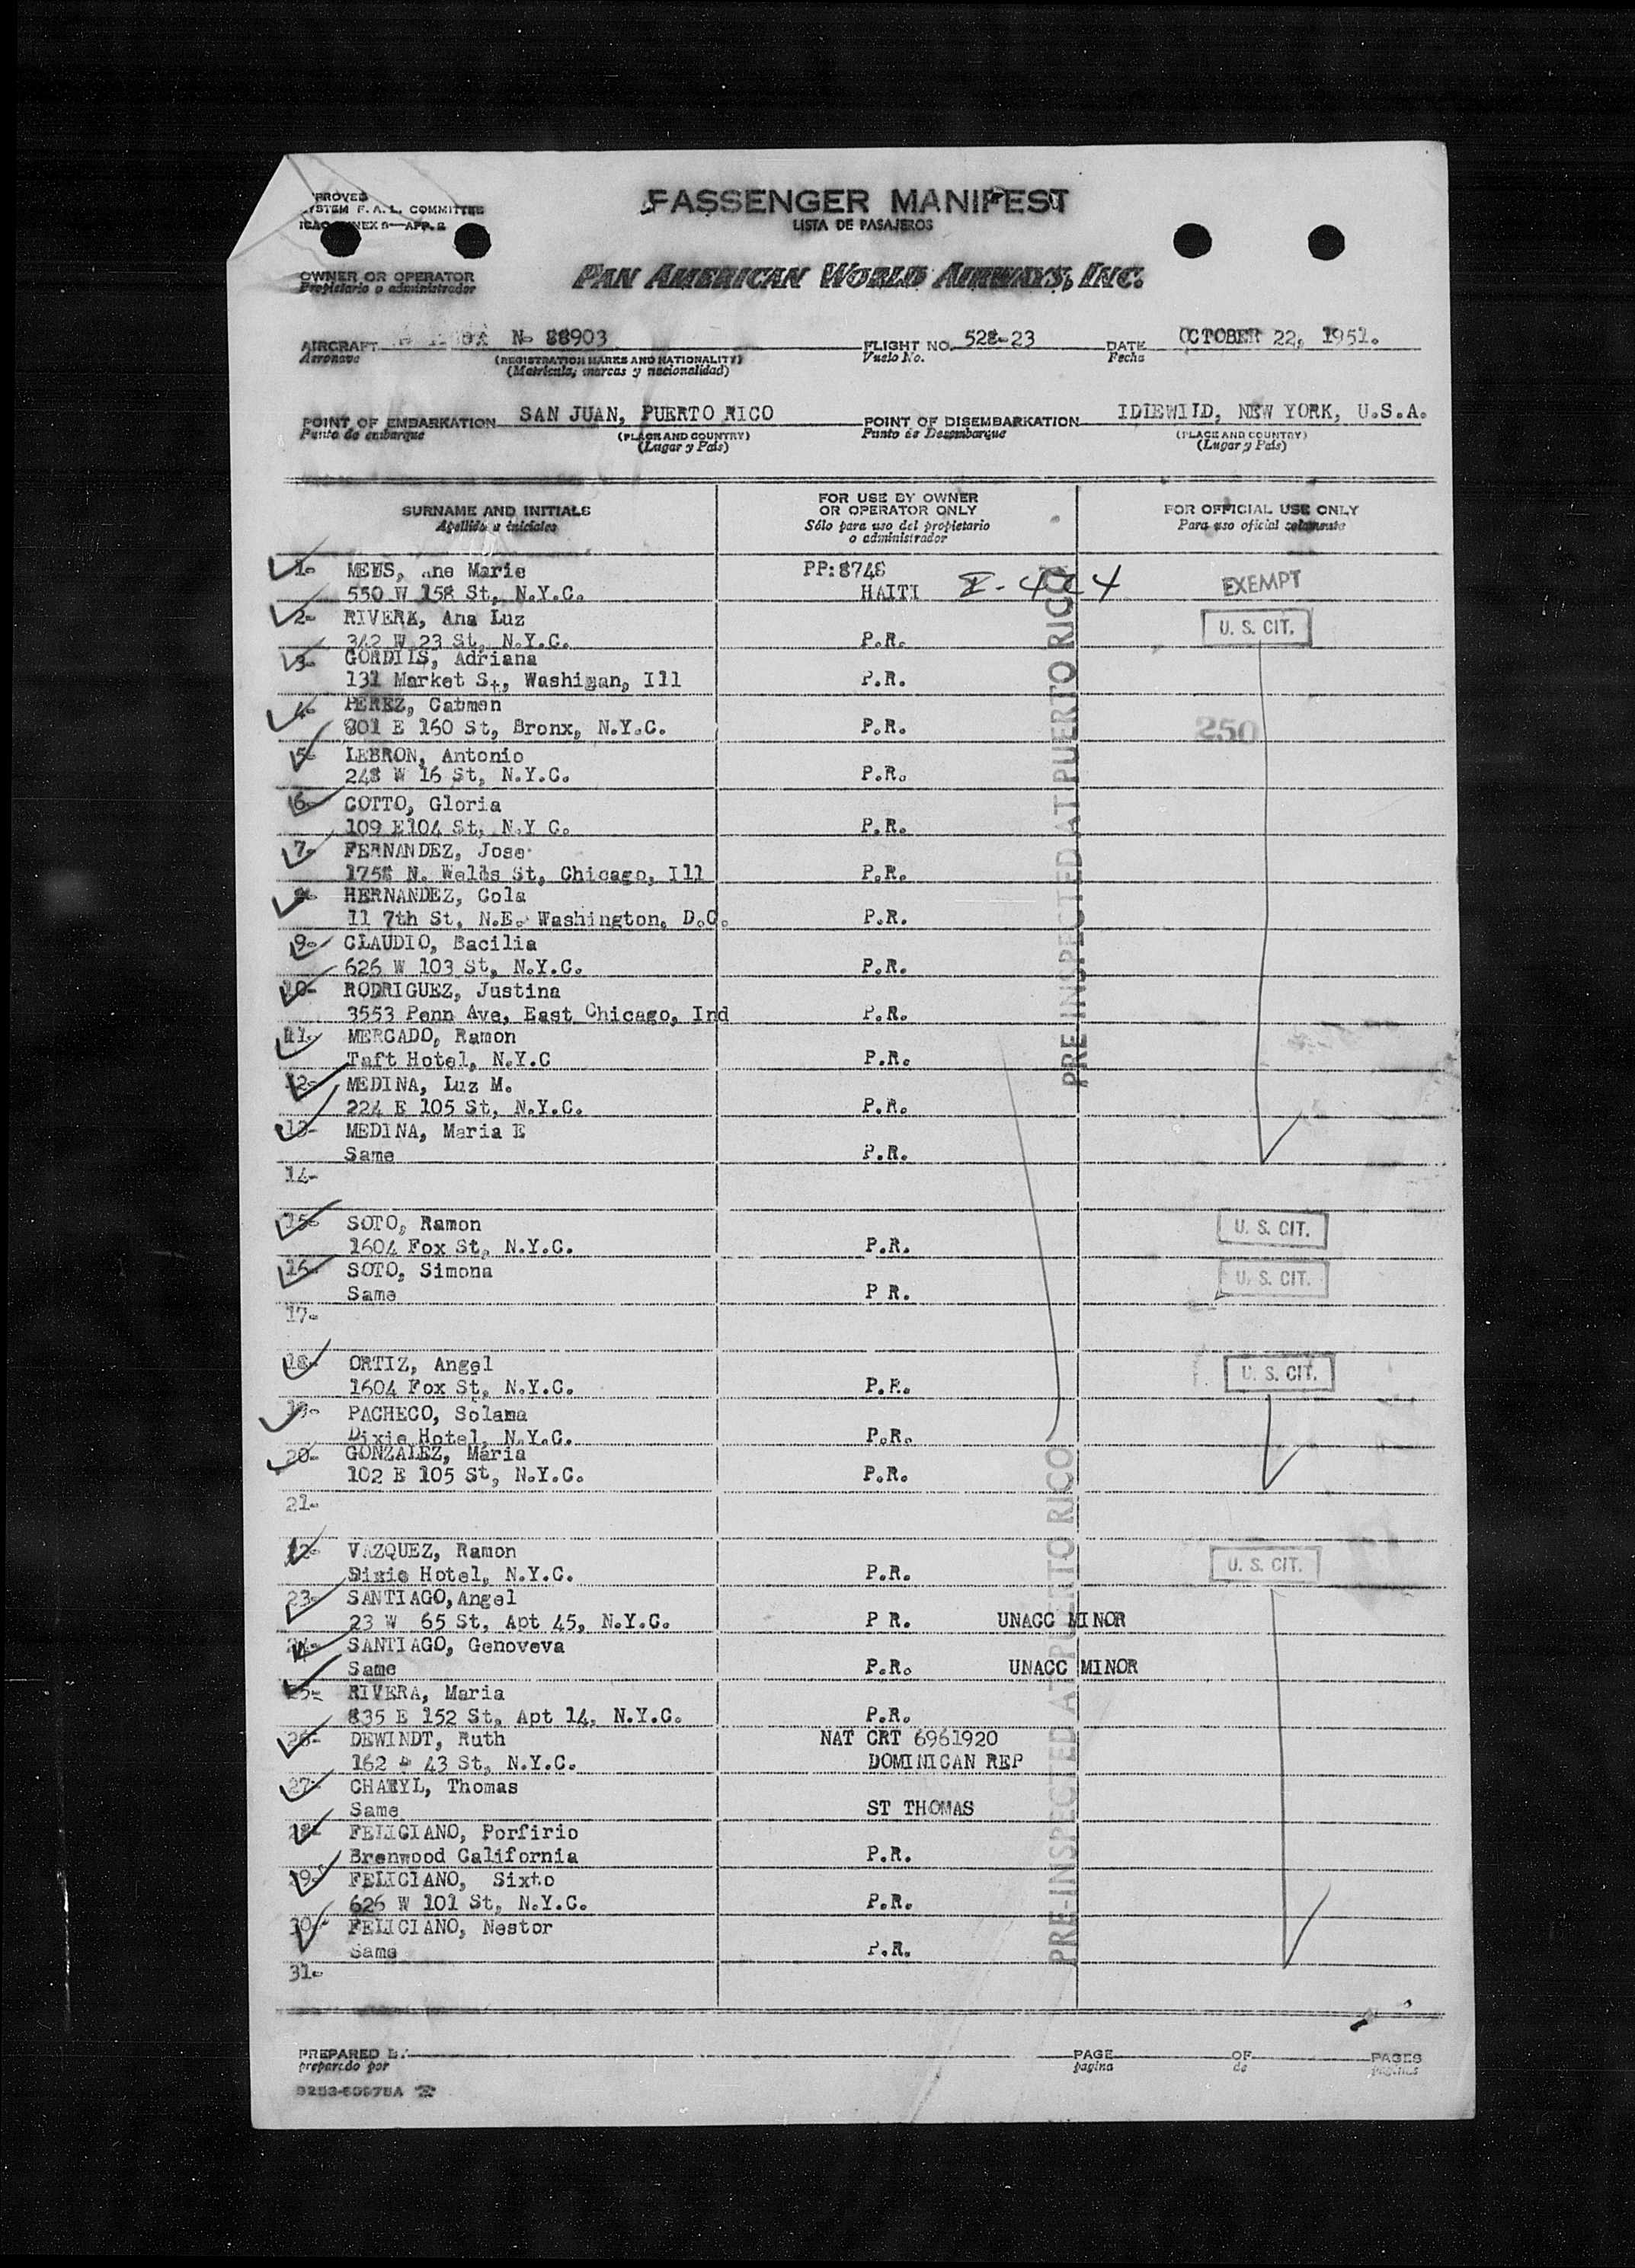 PROVED
YSTEM F. A. L. COMMITTEE
ICAO ANNEX 9—APP. 2
PASSENGER MANIFEST
LISTA DE PASAJEROS
OWNER OR OPERATOR
Propietario o administrador
PAN AMERICAN WORLD AIRWAYS, INC.
AIRCRAFT No 88903
Aeronave
(REGISTRATION MARKS AND NATIONALITY)
(Matricula, marcas y nacionalidad)
FLIGHT NO. 528-23
Vuelo No.
DATE OCTOBER 22, 1951.
Fecha
POINT OF EMBARKATION SAN JUAN, PUERTO RICO
Punto de embarque
(PLACE AND COUNTRY)
(Lugar y País)
POINT OF DISEMBARKATION IDLEWILD, NEW YORK, U.S.A.
Punto de Desembarque
(PLACE AND COUNTRY)
(Lugar y País)
SURNAME AND INITIALS
Apellido e iniciales
FOR USE BY OWNER
OR OPERATOR ONLY
Sólo para uso del propietario
o administrador
FOR OFFICIAL USE ONLY
Para uso oficial solamente
1- MEWS, Ane Marie PP:8748
550 W 158 St, N.Y.C. HAITI I-424 EXEMPT
2- RIVERA, Ana Luz U. S. CIT.
342 W 23 St, N.Y.C. P.R.
3- GORDILS, Adriana
131 Market St, Washigan, Ill P.R.
4- PEREZ, Catmen
801 E 160 St, Bronx, N.Y.C. P.R. 250
5- LEBRON, Antonio
248 W 16 St, N.Y.C. P.R.
6- COTTO, Gloria
109 E104 St, N.Y C. P.R.
7- FERNANDEZ, Jose
1758 N. Wells St, Chicago, Ill P.R.
8- HERNANDEZ, Cola
11 7th St, N.E. Washington, D.C. P.R.
9- CLAUDIO, Bacilia
626 W 103 St, N.Y.C. P.R.
10- RODRIGUEZ, Justina
3553 Penn Ave, East Chicago, Ind P.R.
11- MERCADO, Ramon
Taft Hotel, N.Y.C P.R.
12- MEDINA, Luz M.
224 E 105 St, N.Y.C. P.R.
13- MEDINA, Maria E
Same P.R.
14-
PRE-INSPECTED AT PUERTO RICO
15- SOTO, Ramon U. S. CIT.
1604 Fox St, N.Y.C. P.R.
16- SOTO, Simona U. S. CIT.
Same P R.
17-
18- ORTIZ, Angel U. S. CIT.
1604 Fox St, N.Y.C. P.R.
19- PACHECO, Solama
Dixie Hotel, N.Y.C. P.R.
20- GONZALEZ, Maria
102 E 105 St, N.Y.C. P.R.
21-
22- VAZQUEZ, Ramon U. S. CIT.
Dixie Hotel, N.Y.C. P.R.
23- SANTIAGO,Angel
23 W 65 St, Apt 45, N.Y.C. P R. UNACC MINOR
24- SANTIAGO, Genoveva
Same P.R. UNACC MINOR
25- RIVERA, Maria
835 E 152 St, Apt 14, N.Y.C. P.R.
26- DEWINDT, Ruth NAT CRT 6961920
162 43 St, N.Y.C. DOMINICAN REP
27- Thomas
Same ST THOMAS
28- FELICIANO, Porfirio
Brenwood California P.R.
29- FELICIANO, Sixto
626 W 101 St, N.Y.C. P.R.
30- FELICIANO, Nestor
Same P.R.
31-
PRE-INSPECTED AT PUERTO RICO
PREPARED BY
preparado por
PAGE OF PAGES
pagina de paginas